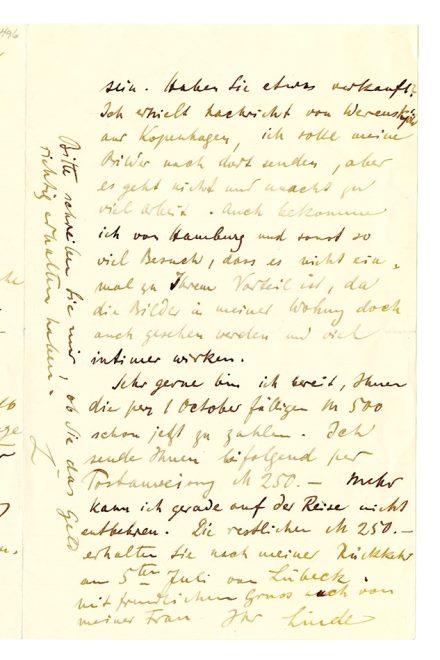 sein. Haben Sie etwas verkauft?
Ich erhielt Nachricht von Werenskjold
aus Kopenhagen, ich solle meine
Bilder nach dort senden, aber
es geht nicht und macht zu
viel Arbeit. Auch bekomme
ich von Hamburg und sonst so
viel Besuch, dass es nicht ein-
mal zu Ihrem Vorteil ist, da
die Bilder in meiner Wohnung doch
auch gesehen werden und viel
intimer wirken.
Sehr gerne bin ich bereit, Ihnen
die per 1 October fälligen M 500
schon jetzt zu zahlen. Ich
sende Ihnen beifolgend per
Postanweisung M 250.— Mehr
kann ich gerade auf der Reise nicht
entbehren. Die restlichen M 250.—
erhalten Sie nach meiner Rückkehr
am 5ten Juli von Lübeck.
Mit freundlichem Gruss auch von
meiner Frau. Ihr Linde
Bitte schreiben Sie mir, ob Sie das Geld
richtig erhalten haben.